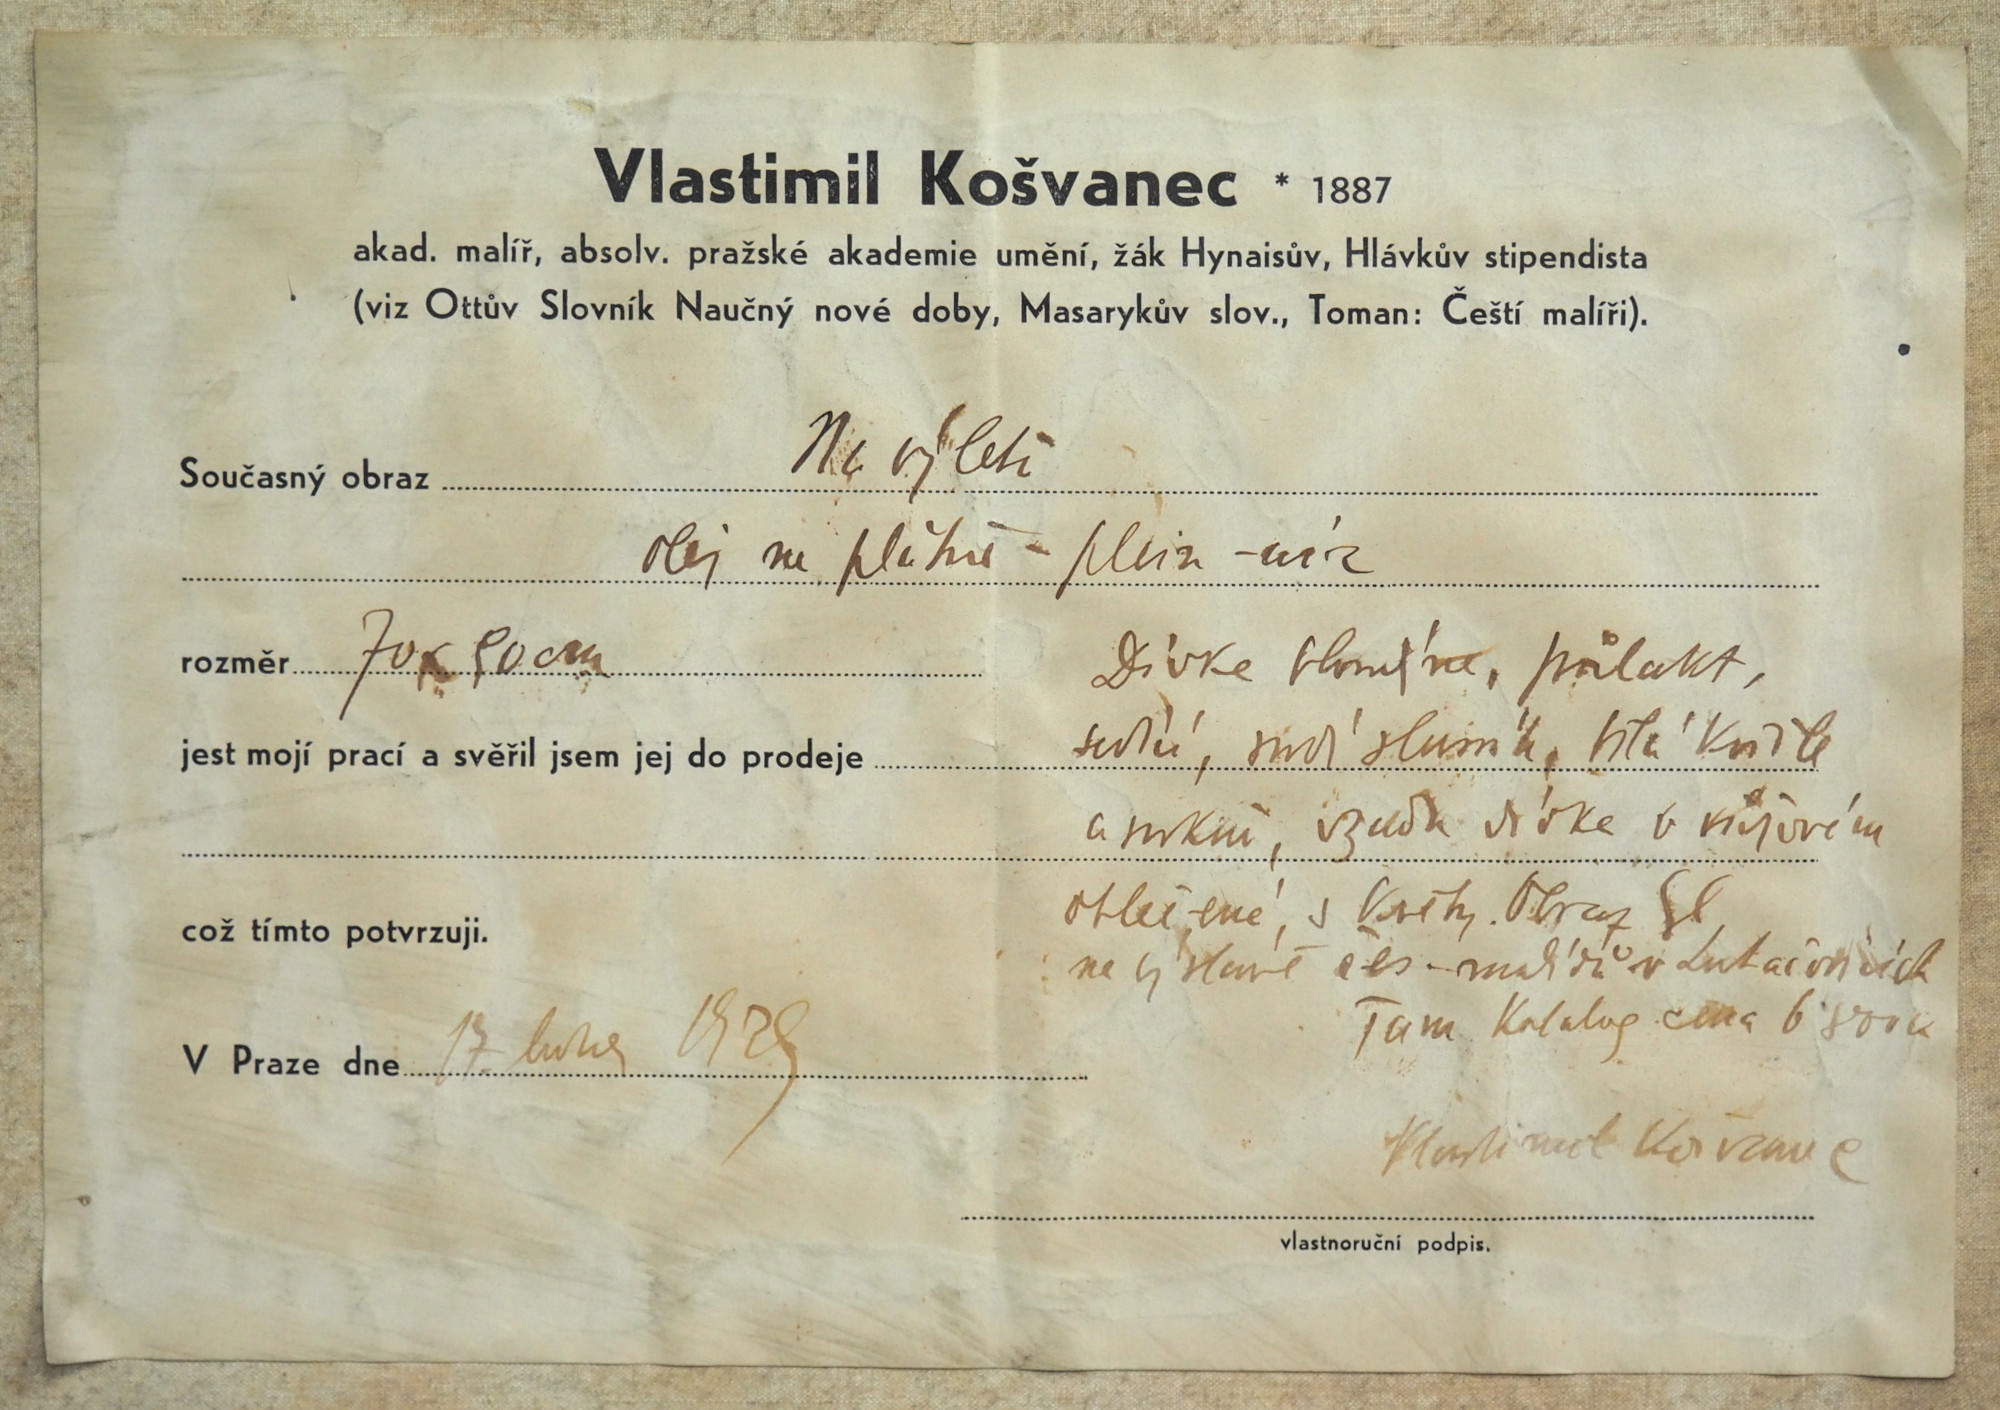 Vlastimil Košvanec * 1887
akad. malíř, absolv. pražské akademie umění, žák Hynaisův, Hlávkův stipendista
(viz Ottův Slovník Naučný nové doby, Masarykův slov., Toman: Čeští malíři).
Současný obraz Na výletě
olej na plátně - plein-air
rozměr 70x90cm
Dívka plavá, půlakt,
jest mojí prací a svěřil jsem jej do prodeje
sedící, slamák, bílá košile
a sukně, vzadu dívka v růžovém
oblečené, s květy. Obraz byl
což tímto potvrzuji.
na výstavě čes. malířů v Luhačovicích
Tam Katalog cena
V Praze dne 17. 1929
Vlastimil Košvanec
vlastnoruční podpis.